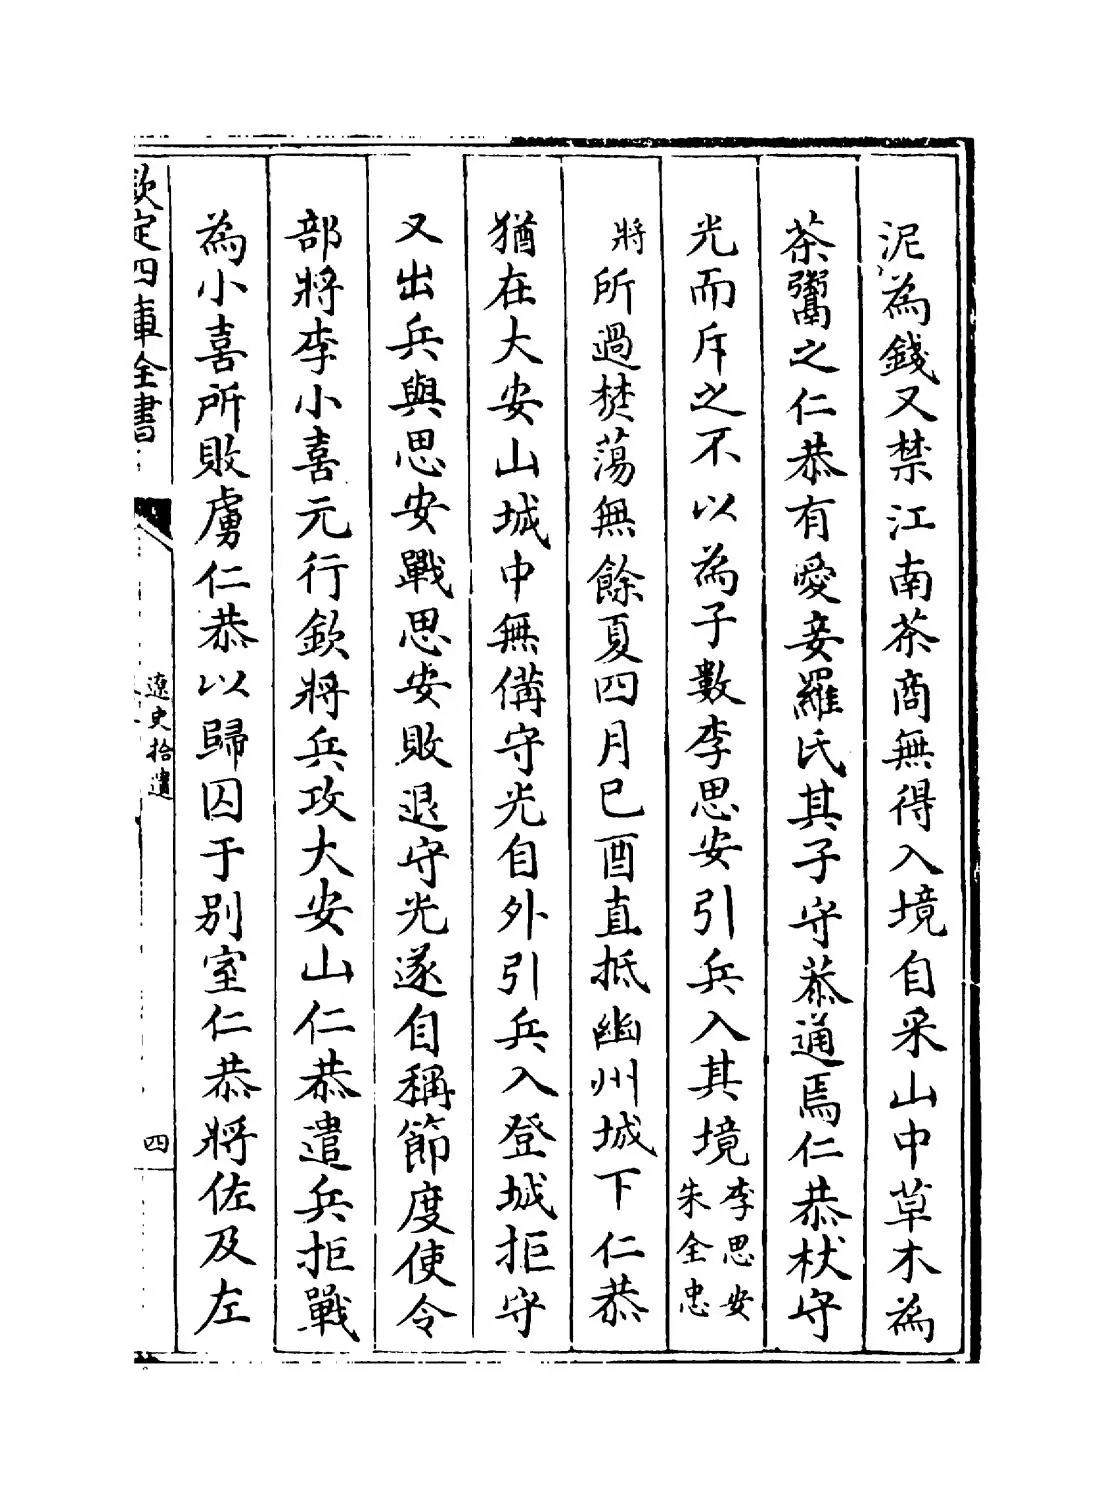 泥為錢又禁江南茶商無得入境自采山中草木為
茶鬻之仁恭有愛妾羅氏其子守恭通焉仁恭杖守
光而斥之不以為子數李思安引兵入其境李思安朱全忠
將所過焚蕩無餘夏四月已酉直抵幽州城下仁恭
猶在大安山城中無備守光自外引兵入登城拒守
又出兵與思安戰思安敗退守光遂自稱節度使令
部將李小喜元行欽將兵攻大安山仁恭遣兵拒戰
為小喜所敗虜仁恭以歸囚于別室仁恭將佐及左
欽定四庫全書
遼史拾遺
四